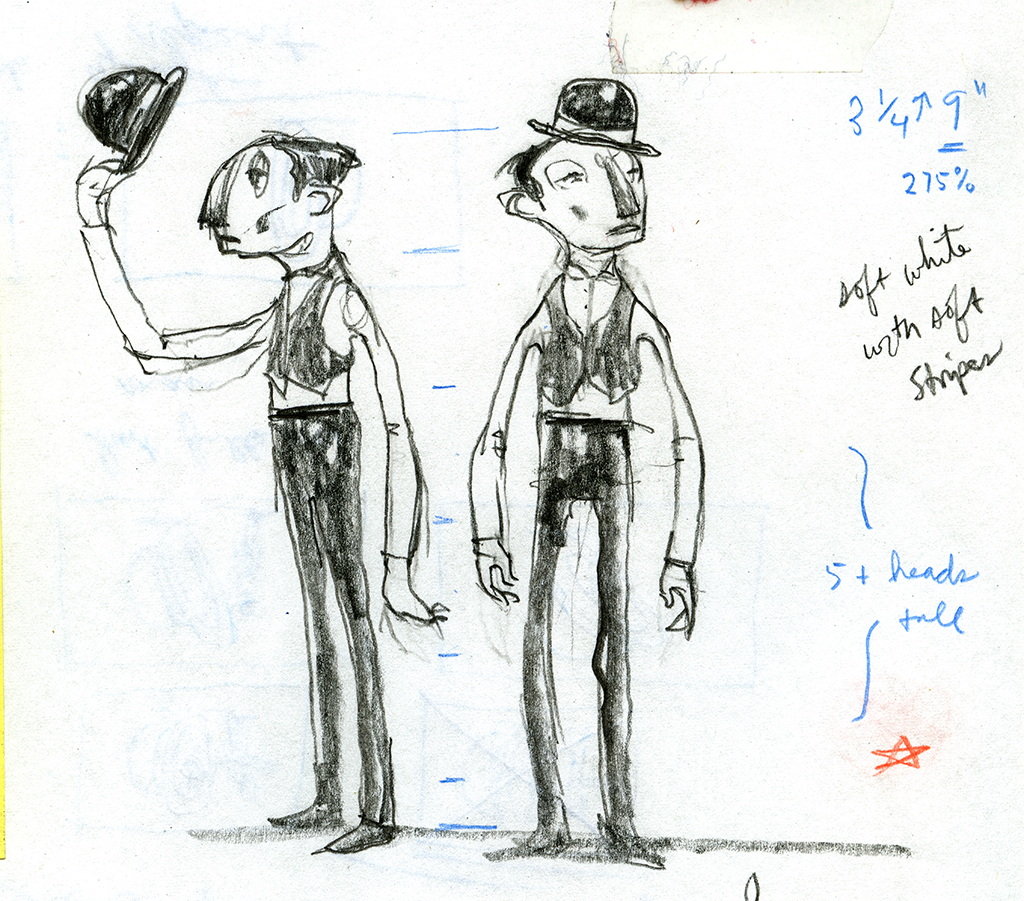 3 1/4 ↗ 9"
275%
soft white
with soft
stripes
5 + heads
tall